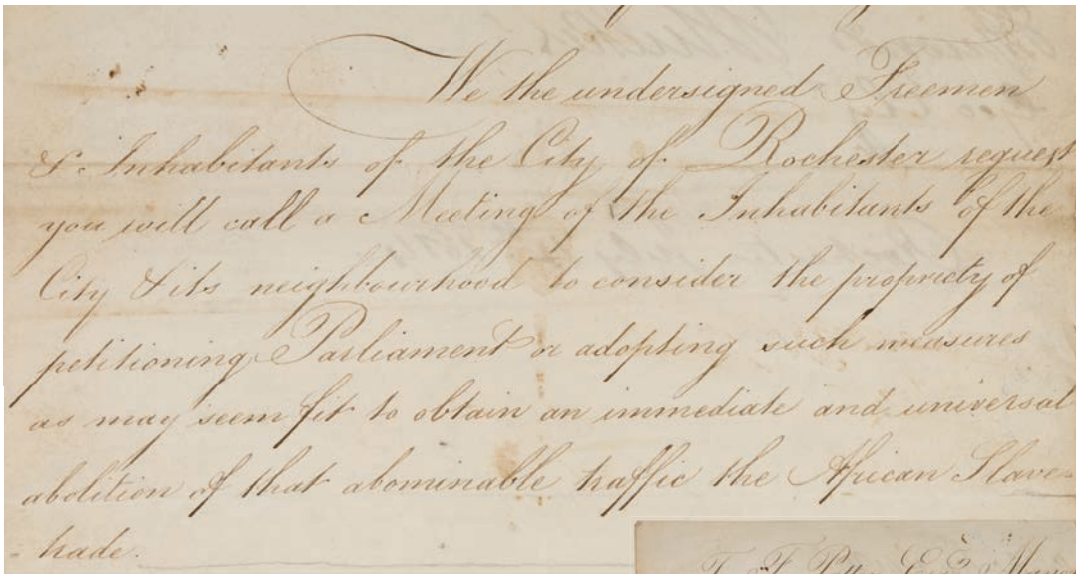 We the undersigned Freemen
& Inhabitants of the City of Rochester request
you will call a Meeting of the Inhabitants of the
City & its neighbourhood to consider the propriety of
petitioning Parliament or adopting such measures
as may seem fit to obtain an immediate and universal
abolition of that abominable traffic the African Slave-
-trade.